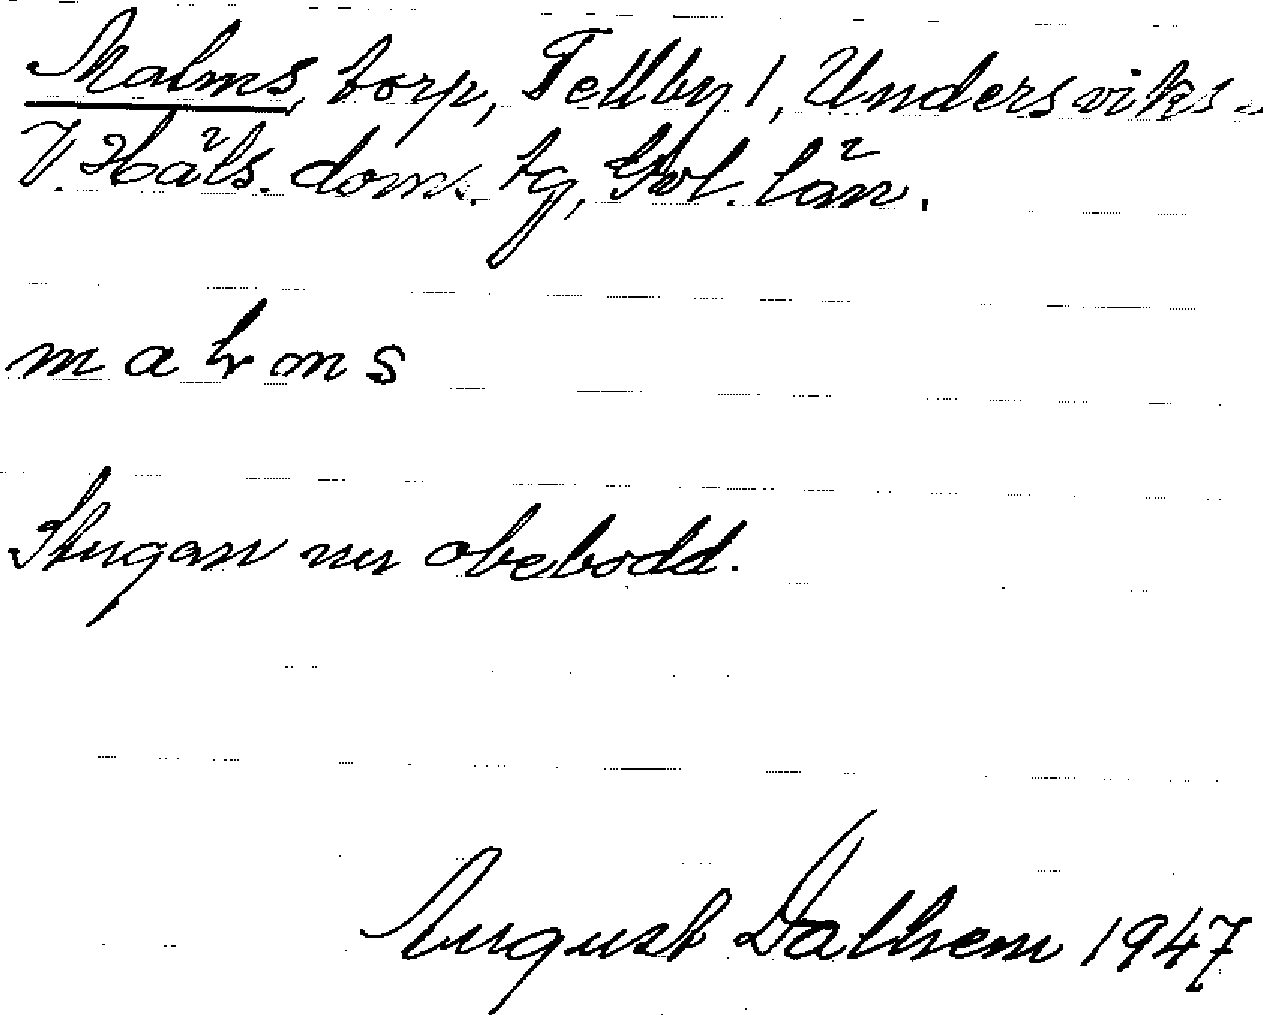 Malms, torp, Tellby 1, Undersviks
V. Häls. doms. tg, Gvl. län.
m a l m s
Stugan nu obebodd.
August Dalhem 1947